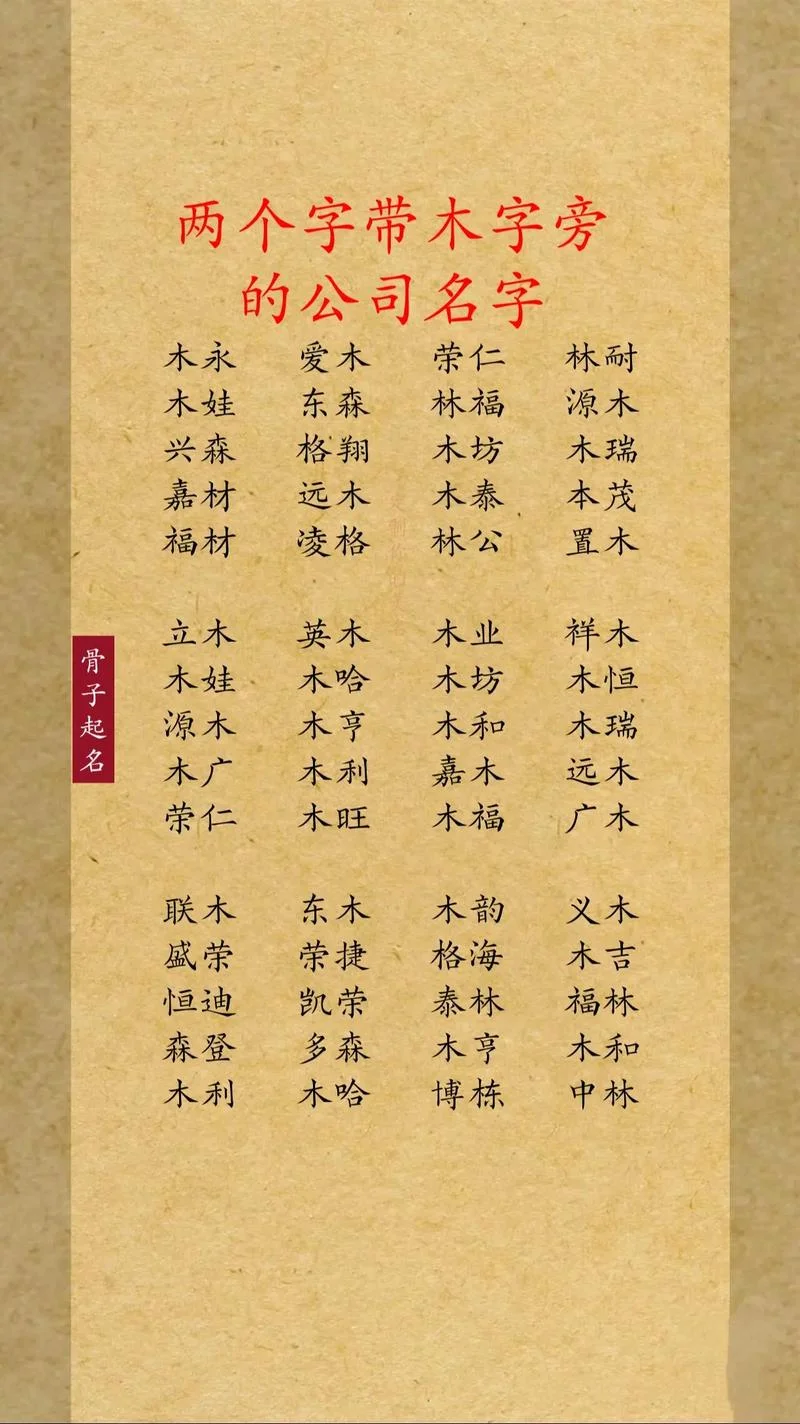 两个字带木字旁
的公司名字
木永 爱木 荣仁 林耐
木娃 东森 林福 源木
兴森 格翔 木坊 木瑞
嘉材 远木 木泰 本茂
福材 凌格 林公 置木
立木 英木 木业 祥木
木娃 木哈 木坊 木恒
源木 木亨 木和 木瑞
木广 木利 嘉木 远木
荣仁 木旺 木福 广木
联木 东木 木韵 义木
盛荣 荣捷 格海 木吉
恒迪 凯荣 泰林 福林
森登 多森 木亨 木和
木利 木哈 博栋 中林
骨子起名